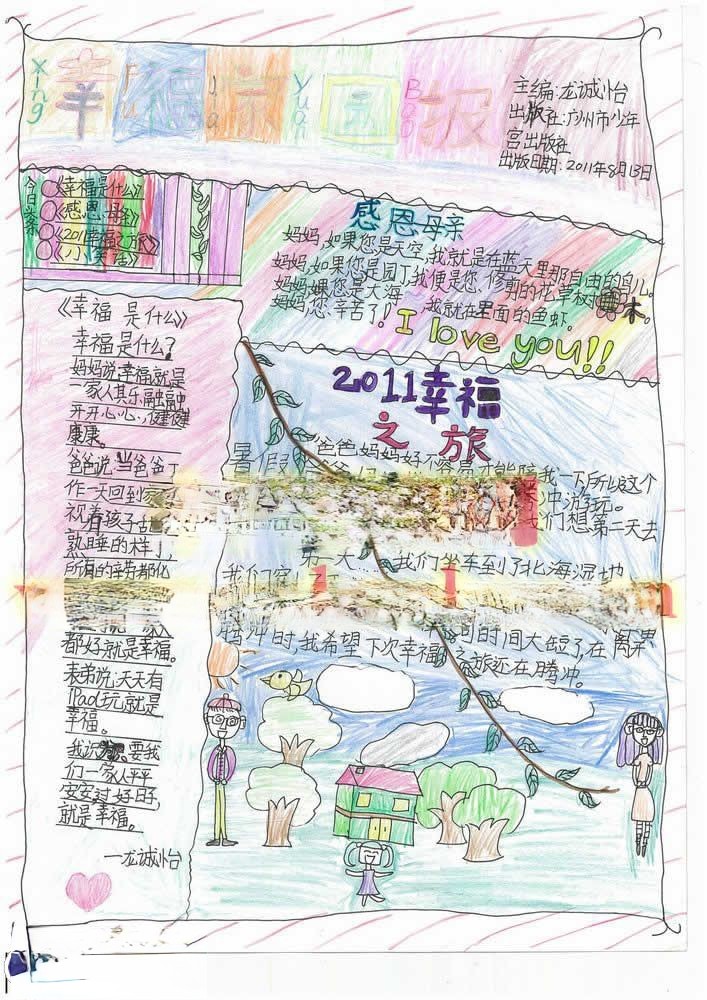 Xing 幸 Fu 福 Jia 家 Yuan 园 Bao 报
主编:龙诚怡
出版社:广州市少年
宫出版社
出版日期:2011年8月13日
今日头条
《幸福是什么》
《感恩母亲》
《2011幸福之旅》
感恩母亲
妈妈,如果您是天空,我就是在蓝天里那自由的鸟儿。
妈妈,如果您是园丁,我便是您修剪的花草树木。
妈妈,如果您是大海,我就在里面的鱼虾。
妈妈您辛苦了!
I love you!!
《幸福是什么》
幸福是什么?
妈妈说,幸福就是
一家人其乐融融
开开心心,健健
康康。
爸爸说,当爸爸工
作一天回到家
视着孩子
熟睡的样
所有的辛劳都化
都好就是幸福。
表弟说,天天有
IPad玩就是
幸福。
我说 要我
们一家人平平
安安过好日子,
就是幸福。
—龙诚怡
2011幸福
之旅
暑假 爸爸妈妈好不容易才能陪我一下所以这个
中游玩。
们想第二天去
我们坐车到了北海湿地
我们
时间太短了,在离
腾冲时,我希望下次幸福之旅还在腾冲。